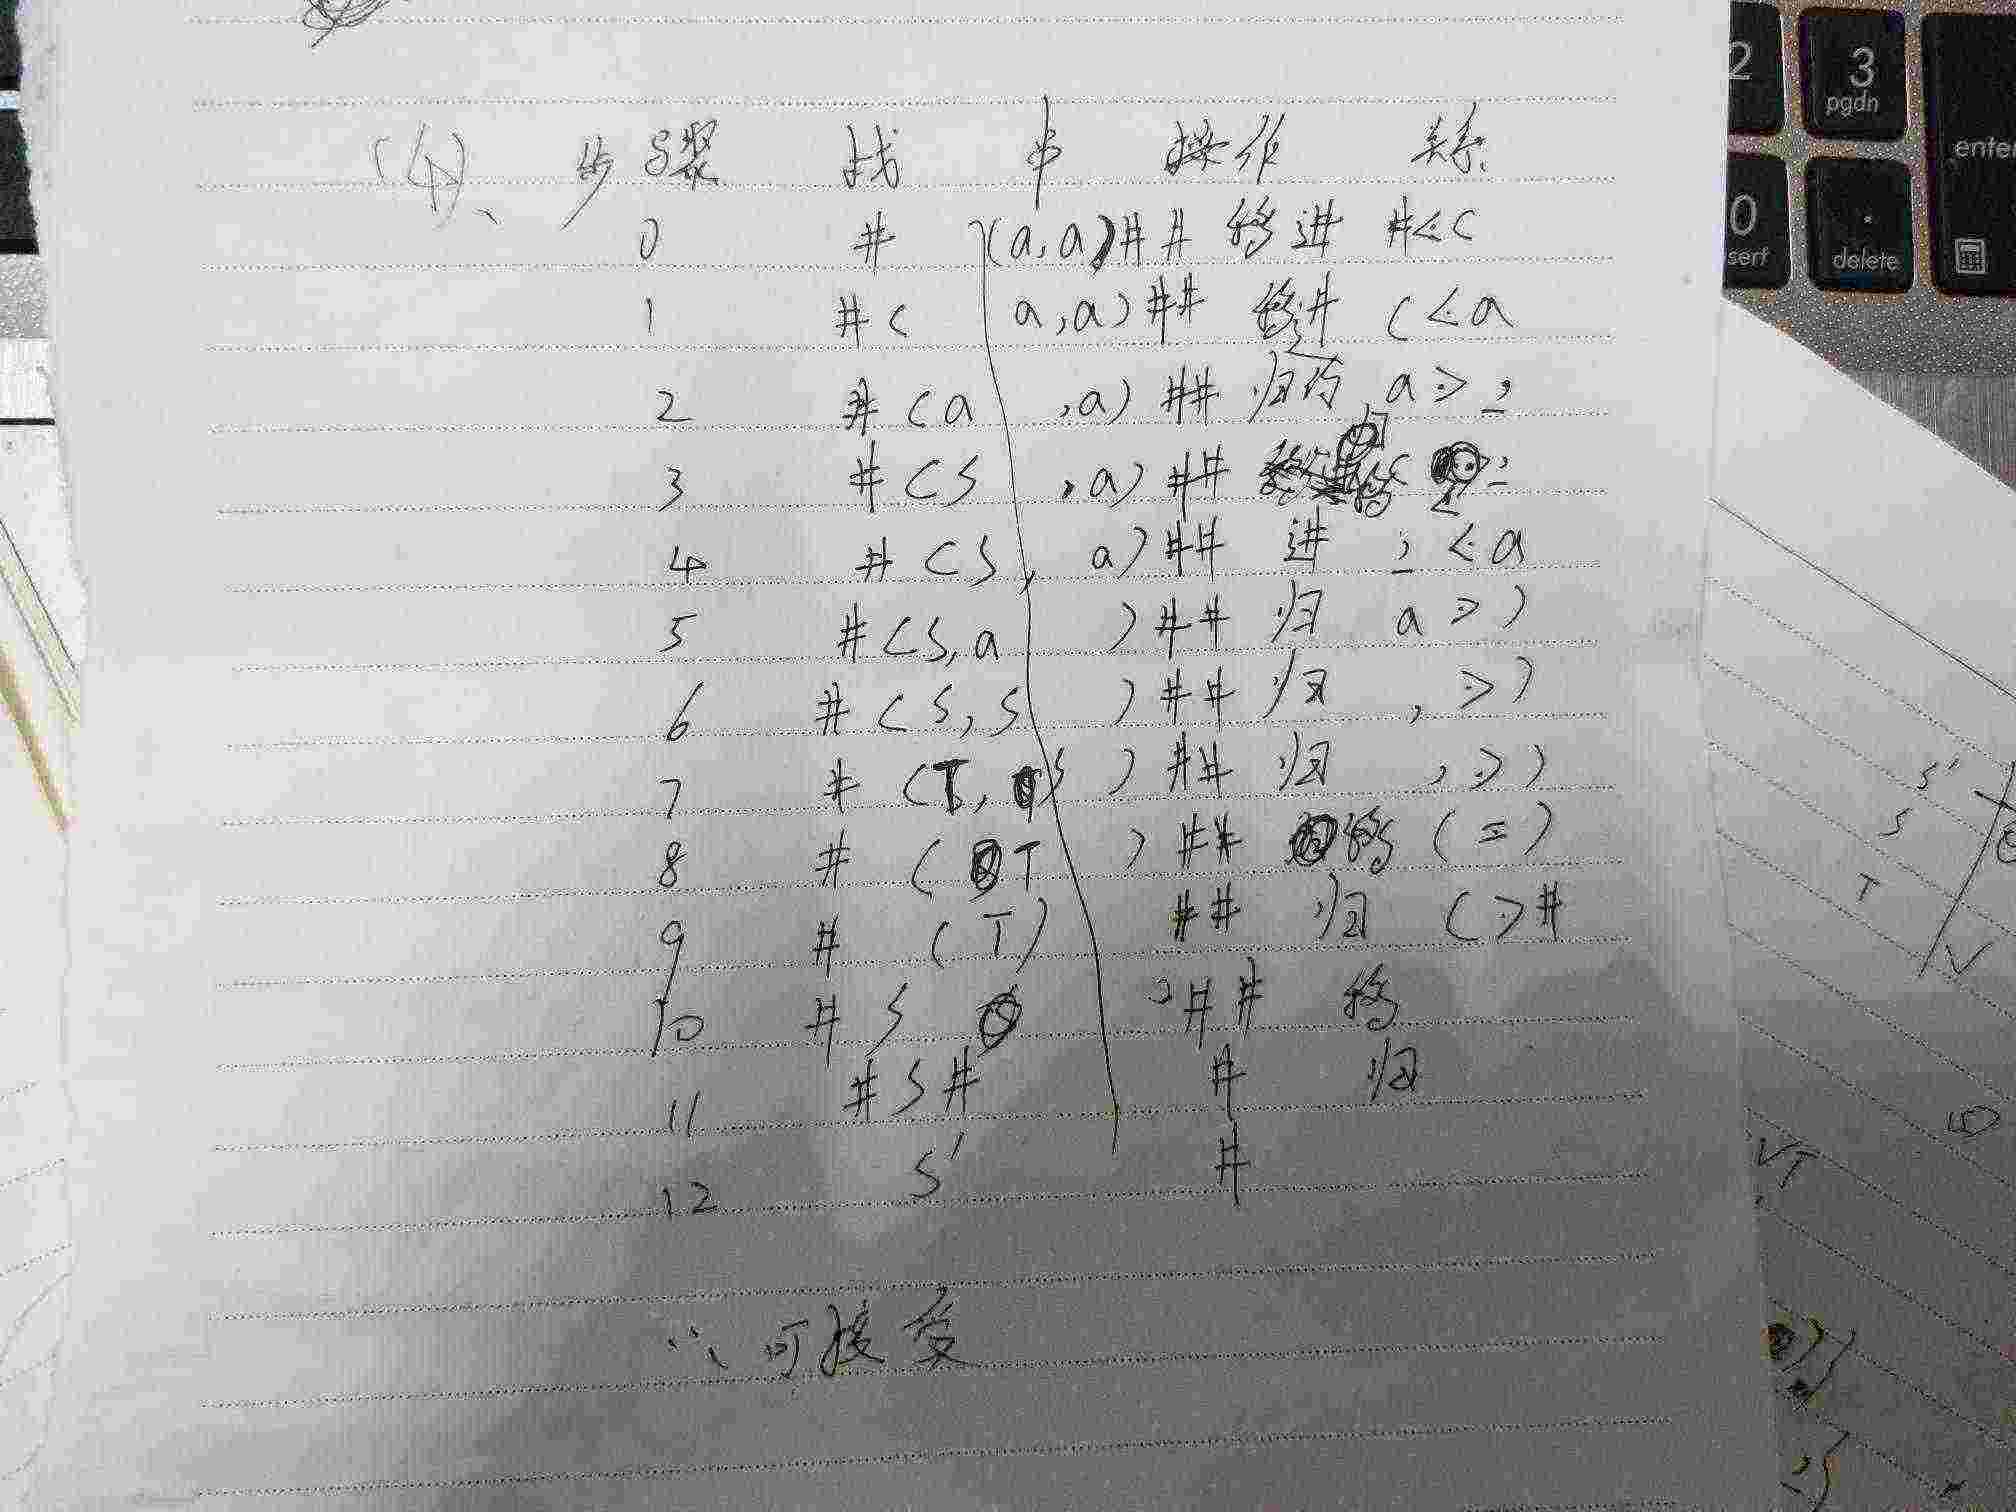 (4)、 步骤 栈 串 操作 关系
0 # (a,a)## 移进 #⋖(
1 #( a,a)## 移进 (⋖a
2 #(a ,a)## 归约 a⋗,
3 #(S ,a)## 移
4 #(S, a)## 进 , ⋖a
5 #(S,a )## 归 a⋗)
6 #(S,S )## 归 ,⋗)
7 #(T,S )## 归 ,⋗)
8 #(T )## 移 (=)
9 #(T) ## 归 (⋗#
10 #S ## 移
11 #S# # 归
12 S' #
∴可接受
2
3
pgdn
enter
0
.
delete
S'
S
T
VT